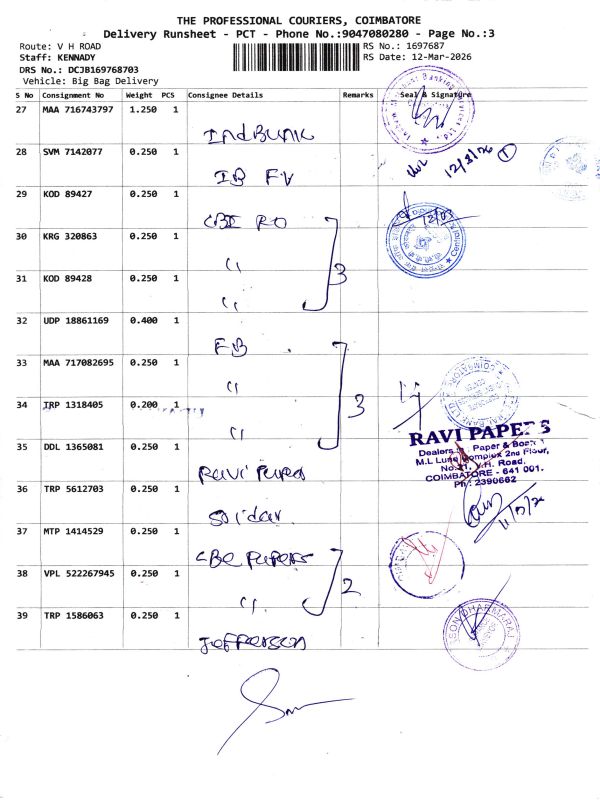 THE PROFESSIONAL COURIERS, COIMBATORE
Delivery Runsheet - PCT - Phone No.:9047080280 - Page No.:3
Route: V H ROAD
RS No.: 1697687
Staff: KENNADY
RS Date: 12-Mar-2026
DRS No.: DCJB169768703
Vehicle: Big Bag Delivery
S No Consignment No Weight PCS Consignee Details Remarks Seal & Signature
27 MAA 716743797 1.250 1
28 SVM 7142077 0.250 1
IB
12/3/26 1
29 KOD 89427 0.250 1
CBE RO
12/03
30 KRG 320863 0.250 1
" 3
31 KOD 89428 0.250 1
"
32 UDP 18861169 0.400 1
FB
33 MAA 717082695 0.250 1
"
34 TRP 1318405 0.200 1
" 3
RAVI PAPERS
Dealers in Paper & Board
M.L Luna Complex 2nd Floor,
No. V.H. Road,
COIMBATORE - 641 001.
Ph: 2390662
35 DDL 1365081 0.250 1
Ravi Papers
36 TRP 5612703 0.250 1
Solidar
37 MTP 1414529 0.250 1
CBE Papers
38 VPL 522267945 0.250 1
" 2
39 TRP 1586063 0.250 1
Jefferson